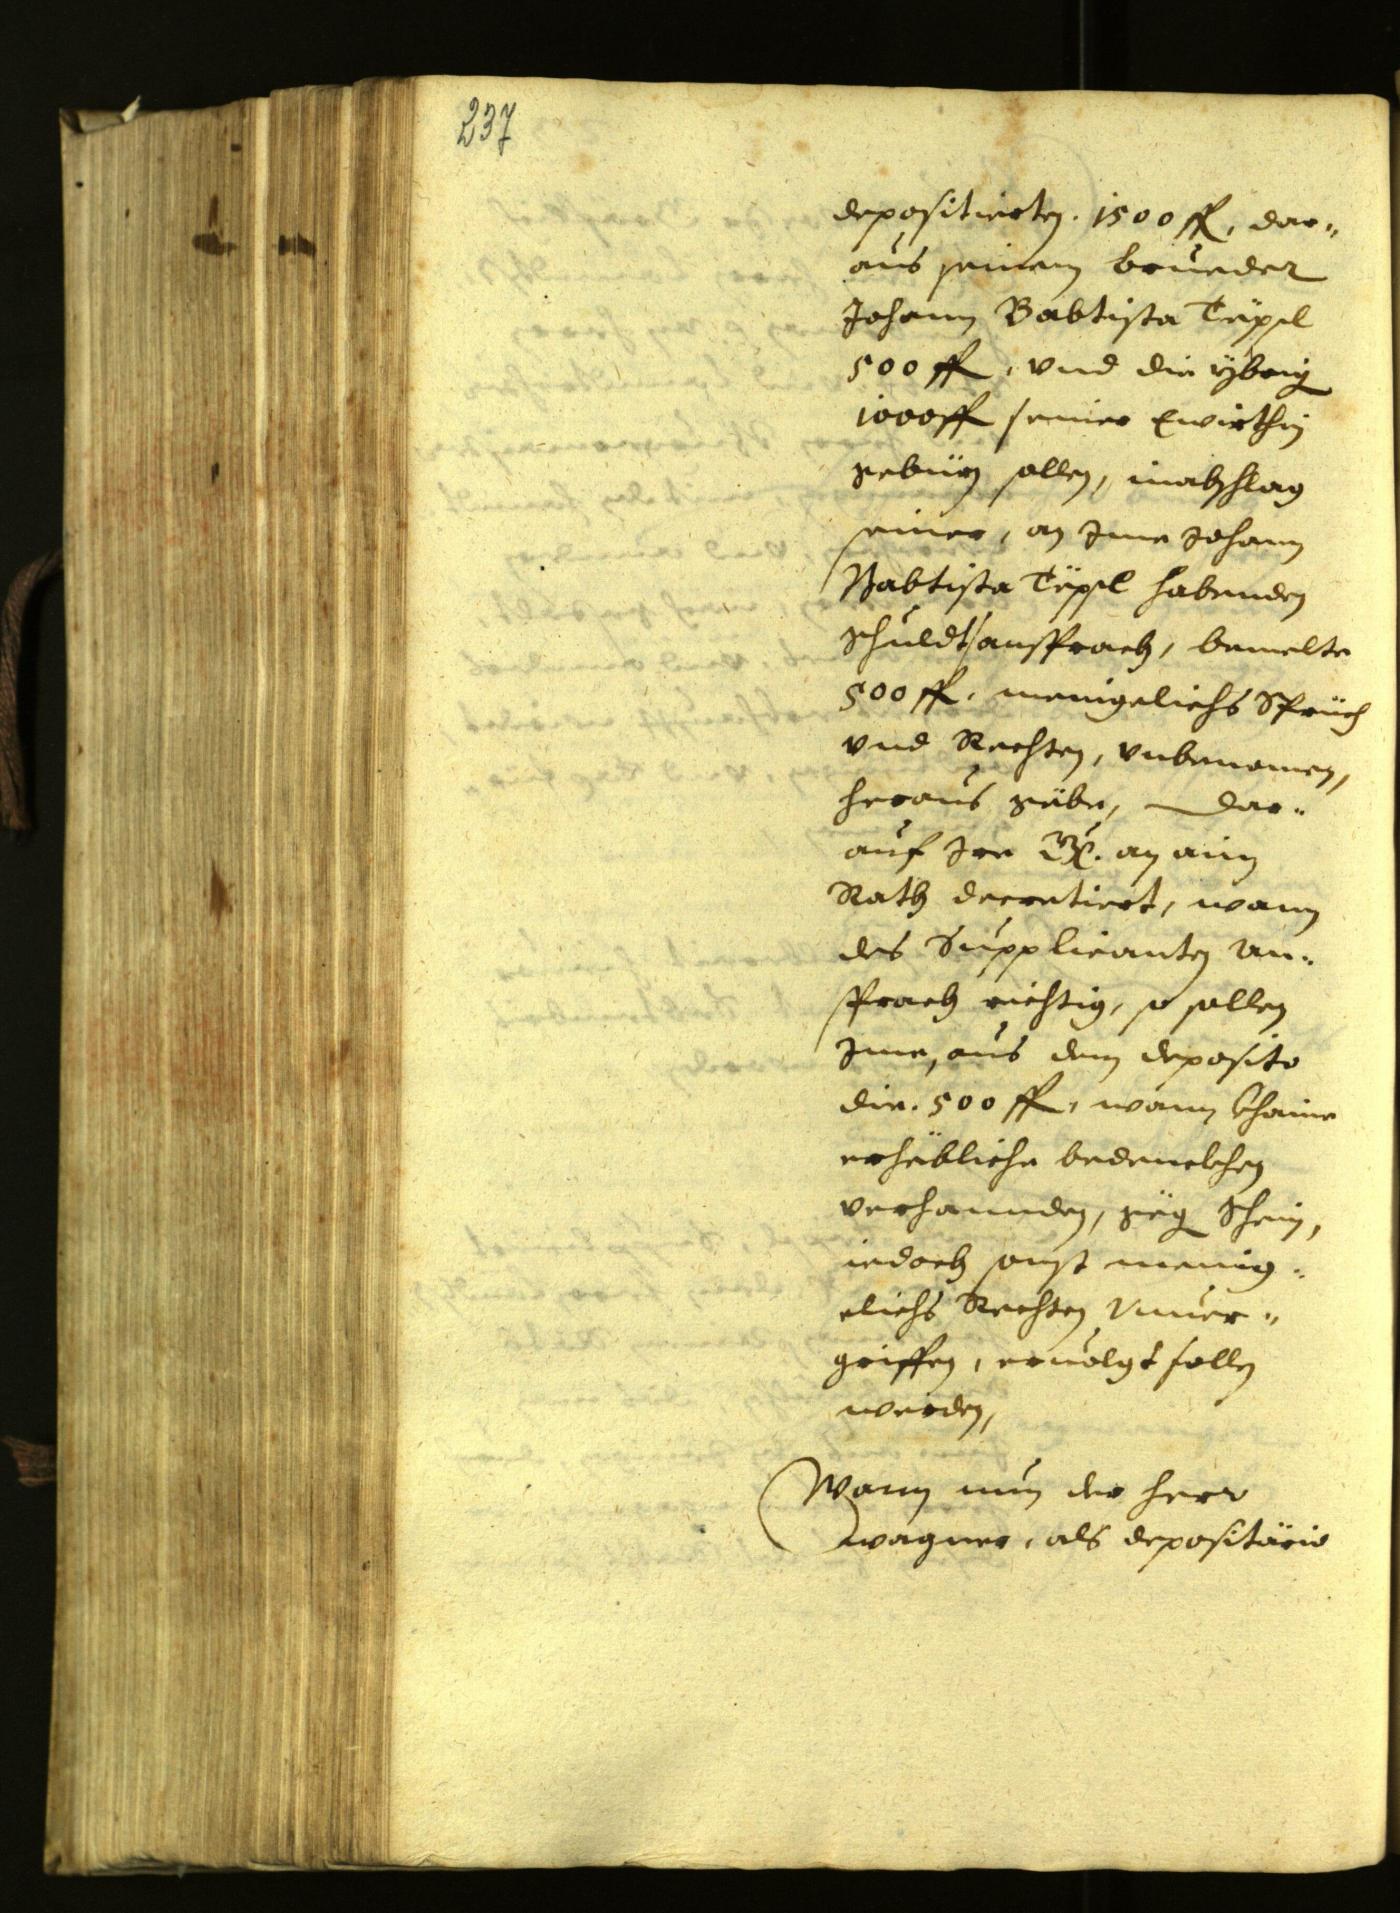 237
depositierten. 1500 fl, dar„
aus seinem brueder
Johann Babtista Täpsl
500 fl, vnd die ybrig
1000 fl seiner Ewirthin
gebürn sollen, in abschlag
seiner, an Jme Johann
Babtista Täpsl habenden
Schuldtsansprach, bemelte
500 fl, meniglichs Sprüch
vnd Rechten, vnbenomen,
heraus gäbe, Dar„
auf Jre an ain
Rath decretiert, wann
des Supplicanten An„
sprach richtig, so sollen
Jme, aus dem deposito
die. 500 fl, wann khaine
erhäbliche bedenckhen
verhannden, gegen Schein,
iedoch sonst menig„
clichs Rechten Vnuer„
griffen, eruolgt sollen
werden,
Wann nun der herr
wagner, als depositario